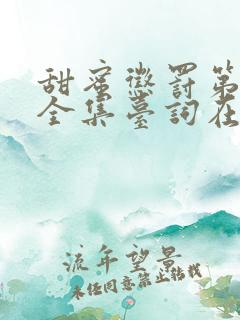 甜蜜懲罰第
全集臺詞在
流年望景
未经同意禁止转载